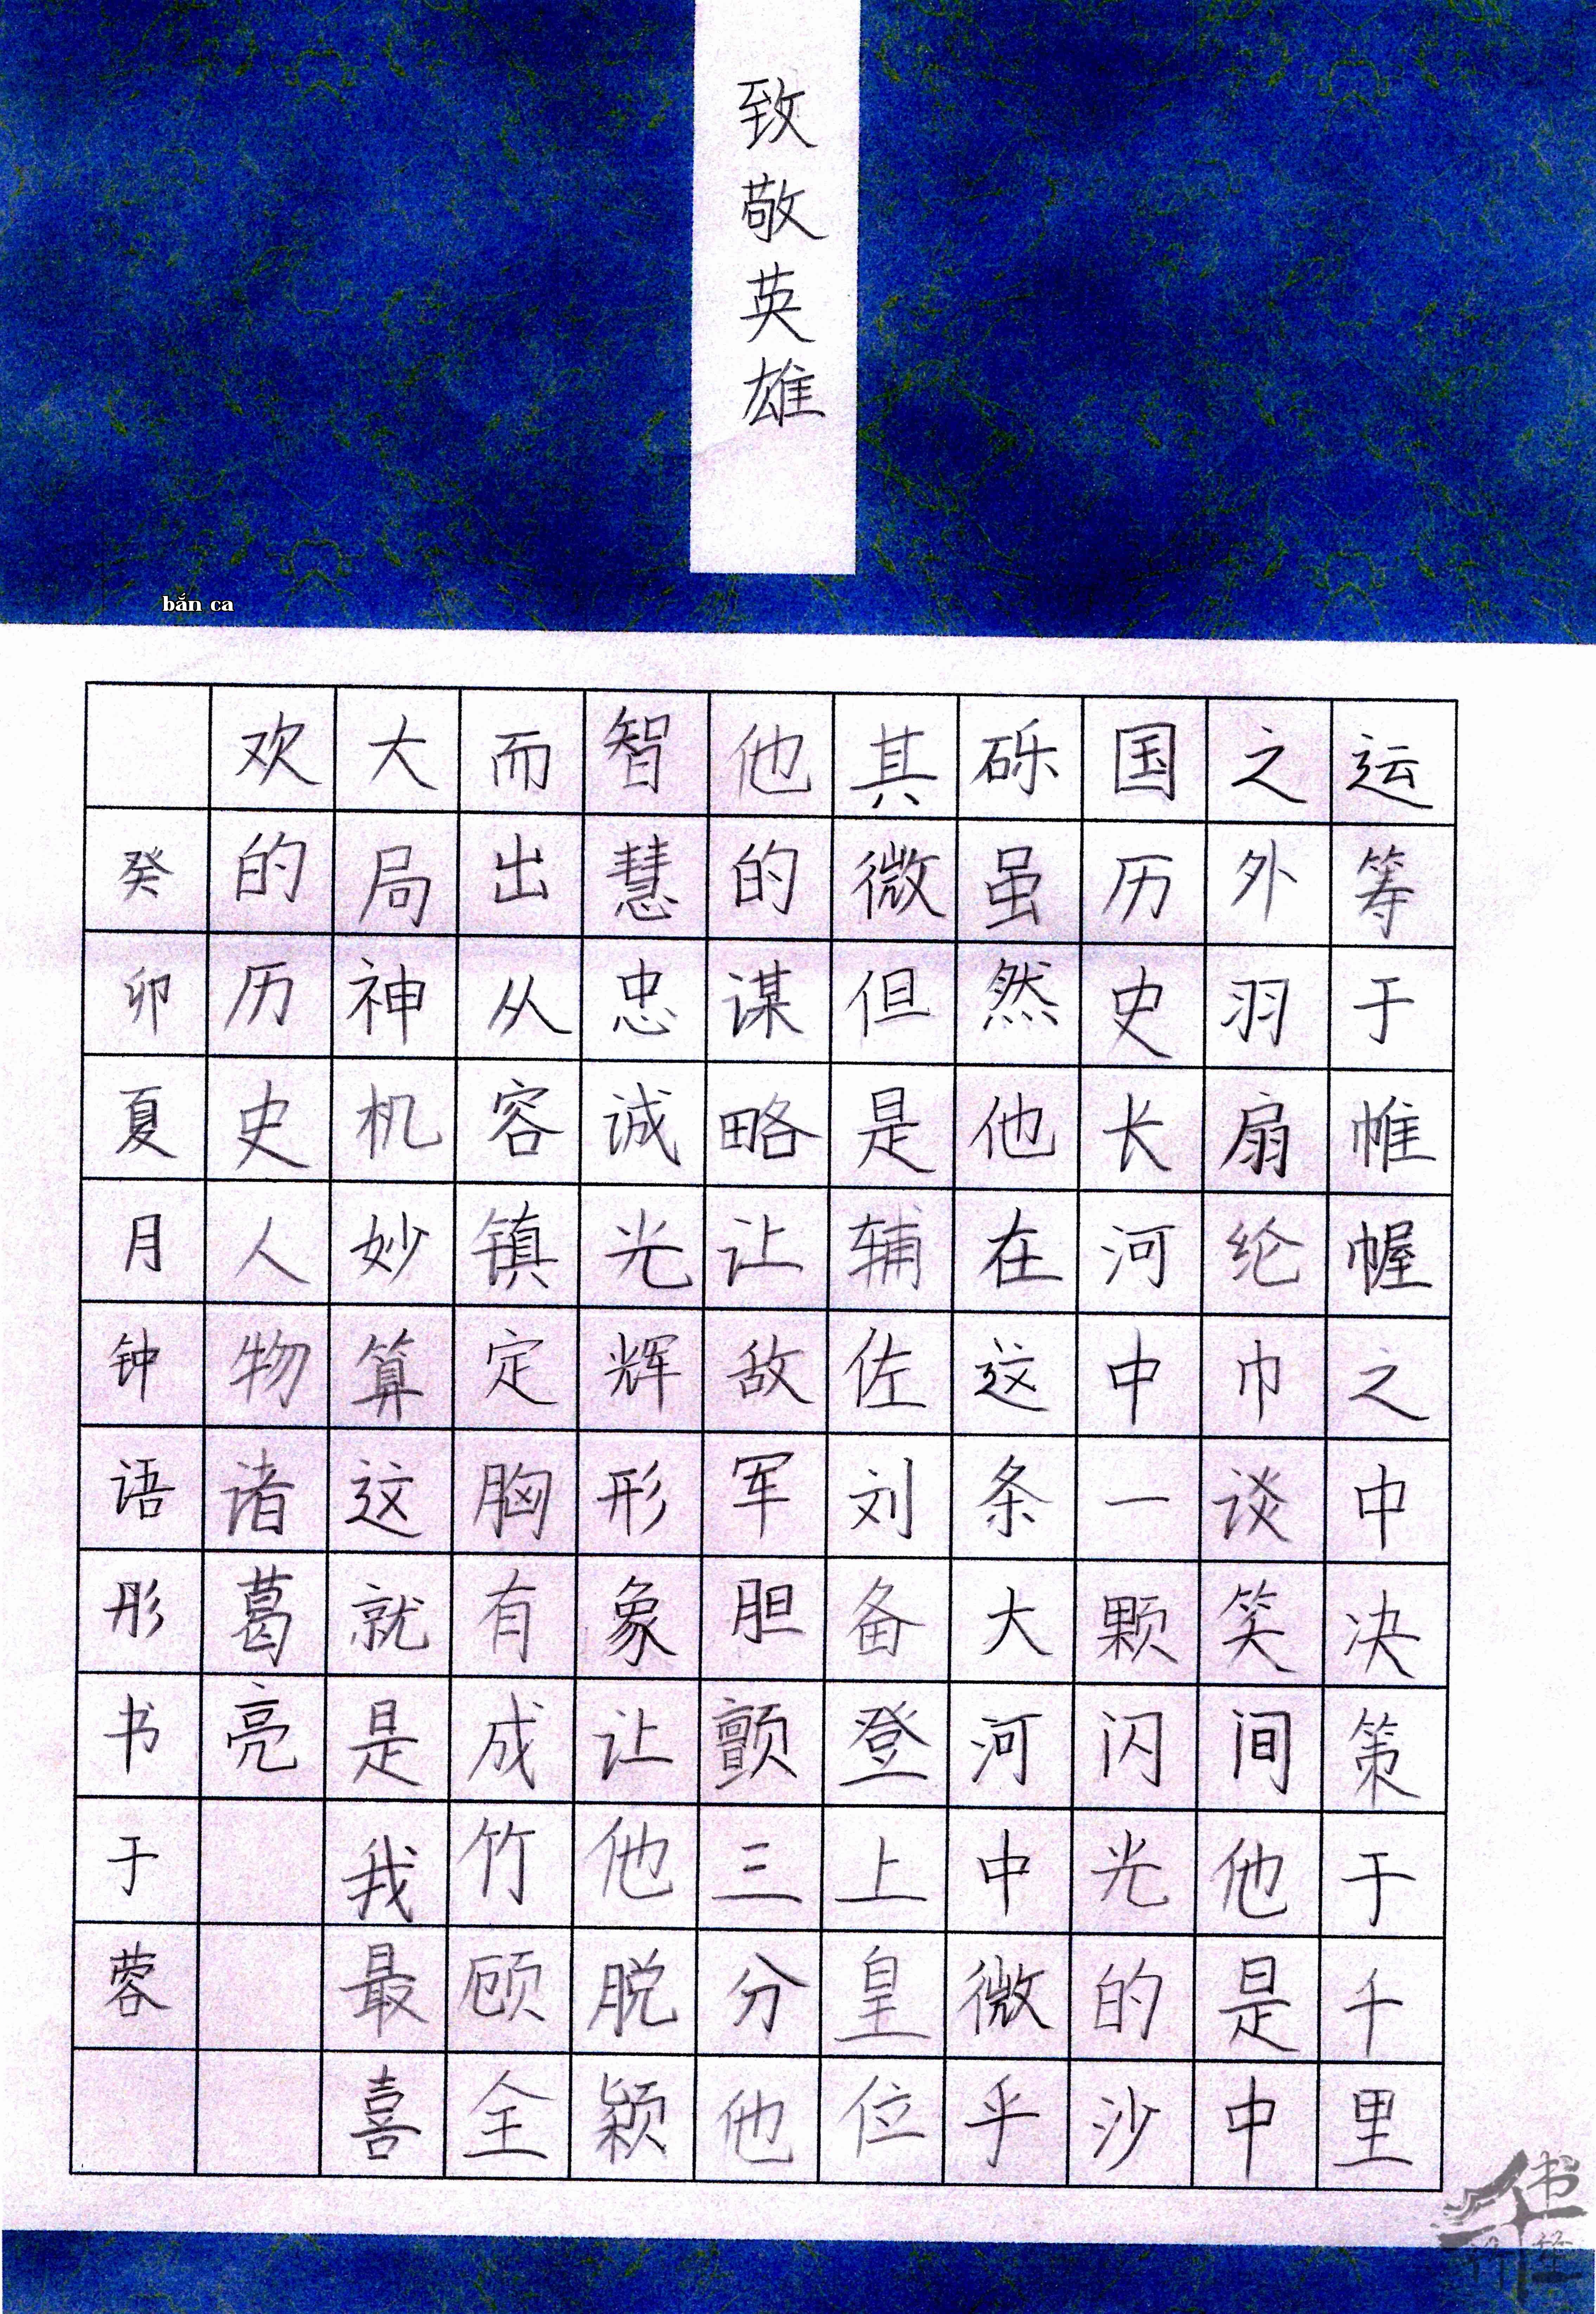 致敬英雄
bắn ca
运筹于帷幄之中决策于千里
之外羽扇纶巾谈笑间他是中
国历史长河中一颗闪光的沙
砾虽然他在这条大河中微乎
其微但是辅佐刘备登上皇位
他的谋略让敌军胆颤三分他
智慧忠诚光辉形象让他脱颖
而出从容镇定胸有成竹顾全
大局神机妙算这就是我最喜
欢的历史人物诸葛亮
癸卯夏月钟语彤书于蓉